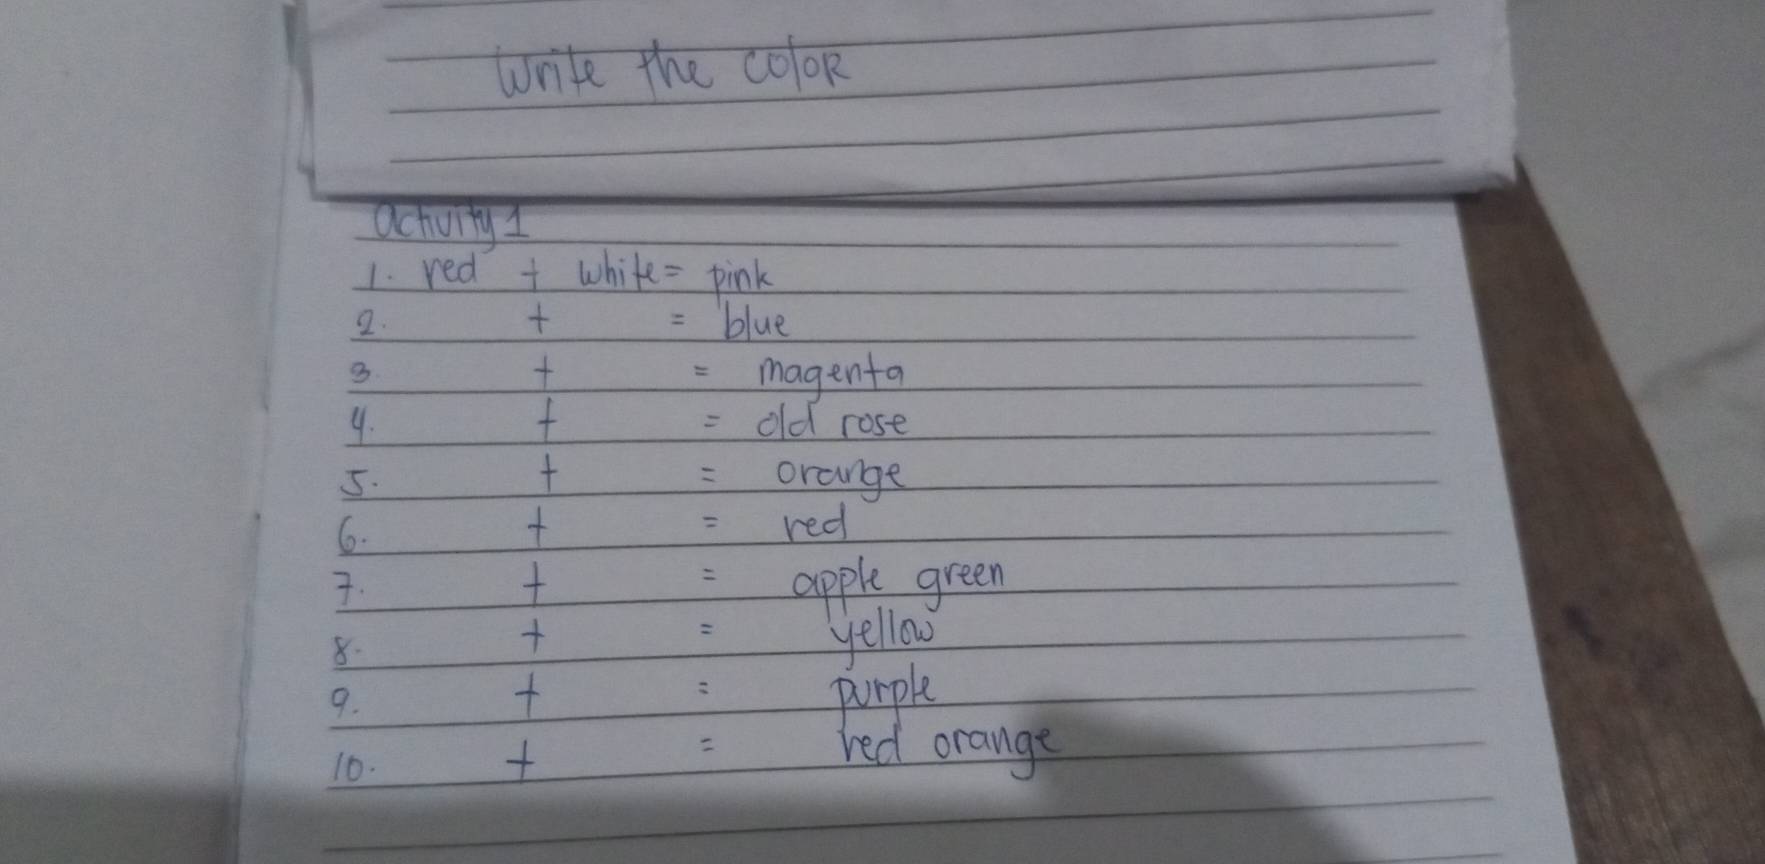 Write the color
activity 1
1. red + white = pink
2. + = blue
3. + = magenta
4. + = old rose
5. + = orange
6. + = red
7. + = apple green
8. + = yellow
9. + = purple
10. + = red orange